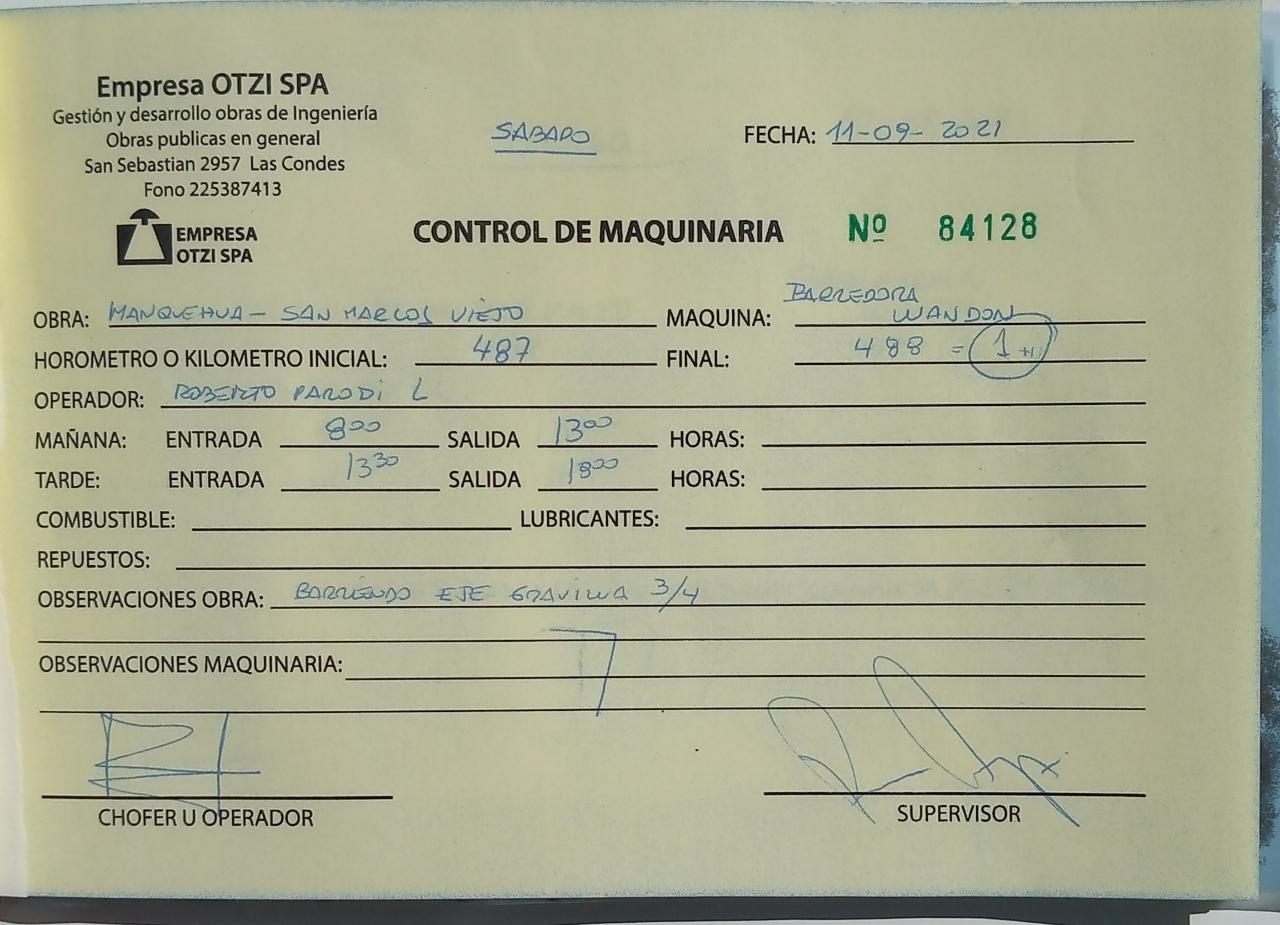 Empresa OTZI SPA
Gestión y desarrollo obras de Ingeniería
Obras publicas en general
San Sebastian 2957 Las Condes
Fono 225387413
EMPRESA
OTZI SPA
SABADO
FECHA: 11-09-2021
CONTROL DE MAQUINARIA Nº 84128
OBRA: MANQUEHUA - SAN MARCOS VIEJO
MAQUINA: BARREDORA
WANDON
HOROMETRO O KILOMETRO INICIAL: 487 FINAL: 488 = 1 H
OPERADOR: ROBERTO PARODI L
MAÑANA: ENTRADA 8:00 SALIDA 13:00 HORAS:
TARDE: ENTRADA 13:30 SALIDA 18:00 HORAS:
COMBUSTIBLE: LUBRICANTES:
REPUESTOS:
OBSERVACIONES OBRA: BARRIENDO EJE GRAVILLA 3/4
OBSERVACIONES MAQUINARIA:
CHOFER U OPERADOR
SUPERVISOR